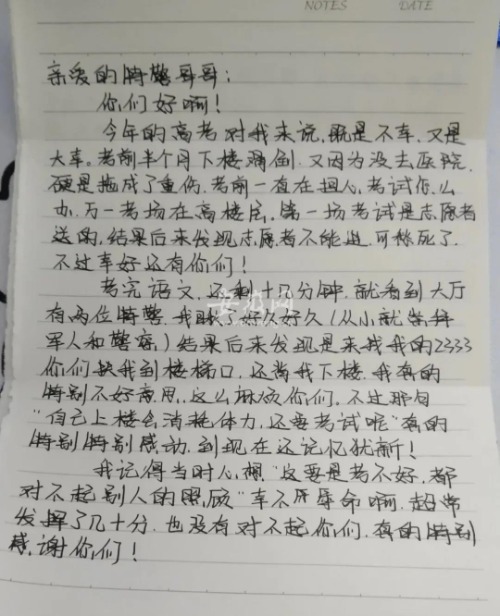 NOTES DATE
亲爱的特警哥哥：
你们好啊！
今年的高考对我来说，既是不幸，又是
大幸。考前半个月下楼滑倒，又因为没去医院，
硬是拖成了重伤。考前一直在担心，考试怎么
办，万一考场在高楼层，第一场考试是志愿者
送的，结果后来发现志愿者不能进，可愁死了，
不过幸好还有你们！
考完语文，还剩十几分钟，就看到大厅
有两位特警，我 好久好久（从小就崇拜
军人和警察）结果后来发现是来找我的2333
你们扶我到楼梯口，还背我下楼，我真的
特别不好意思，这么麻烦你们，不过那句
“自己上楼会消耗体力，还要考试呢”真的
特别特别感动，到现在还记忆犹新！
我记得当时心想“这要是考不好，都
对不起别人的照顾”幸不辱命啊，超常
发挥了几十分，也没有对不起你们，真的特别
感谢你们！